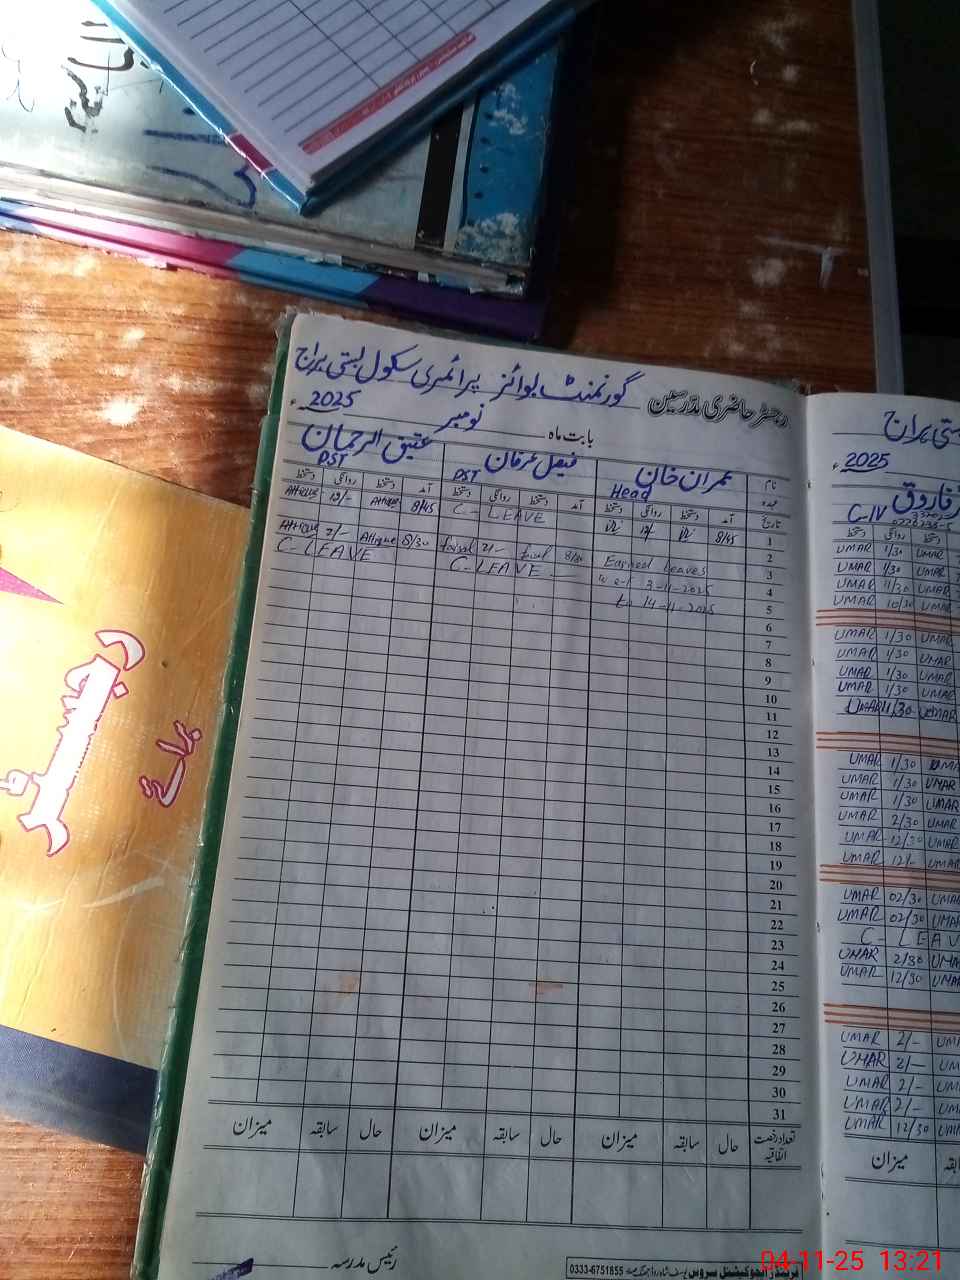 رجسٹر
برائے
رجسٹر حاضری مدرسین گورنمنٹ بوائز پرائمری سکول بستی براج
بابت ماہ نومبر 2025ء
نام عمران خان فیصل عرفان عتیق الرحمان
عہدہ Head PST PST
تاریخ آمد دستخط روانگی دستخط آمد دستخط روانگی دستخط آمد دستخط روانگی دستخط
1 8/45 12/- C-LEAVE 8/45 Attique 12/- Attique
2
3 Earned Leaves 8/30 faisal 2/- faisal 8/30 Attique 2/- Attique
4 w.e.f. 3-11-2025 C-LEAVE C-LEAVE
5 to 14-11-2025
6
7
8
9
10
11
12
13
14
15
16
17
18
19
20
21
22
23
24
25
26
27
28
29
30
31
تعداد رخصت اتفاقیہ حال سابقہ میزان حال سابقہ میزان حال سابقہ میزان
رئیس مدرسہ
0333-6751855
2025ء
فاروق
C-IV
UMAR 1/30 UMAR
UMAR 1/30 UMAR
UMAR 11/30 UMAR
UMAR 10/30 UMAR
UMAR 1/30 UMAR
UMAR 1/30 UMAR
UMAR 1/30 UMAR
UMAR 1/30 UMAR
UMAR 11/30 UMAR
UMAR 1/30 UMA
UMAR 1/30 UMAR
UMAR 1/30 UMAR
UMAR 2/30 UMAR
UMAR 12/30 UMAR
UMAR 12/- UMAR
UMAR 02/30 UMAR
UMAR 02/30 UMAR
C-LEAV
UMAR 2/30 UMA
UMAR 12/30 UMAR
UMAR 2/- UM
UMAR 2/- UM
UMAR 2/- UM
UMAR 2/- UM
UMAR 12/30 UM
میزان
04-11-25 13:21